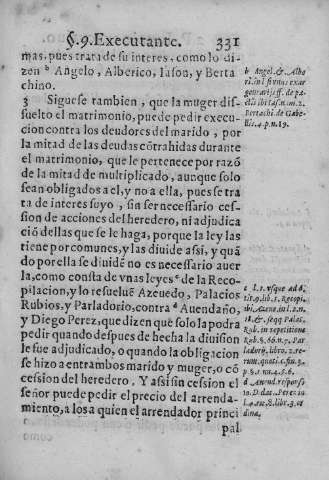 §.9. Executante. 331
mas, pues trata de su interes, como lo di-
zen b Angelo, Alberico, Iason, y Berta
chino.
3 Siguese tambien, que la muger dis-
suelto el matrimonio, puede pedir execu-
cion contra los deudores del marido, por
la mitad de las deudas cõtrahidas durante
el matrimonio, que le pertenece por razõ
de la mitad de multiplicado, aunque solo
sean obligados a el, y no a ella, pues se tra
ta de interes suyo, sin ser necessario ces-
sion de acciones del heredero, ni adjudica
ció dellas que se le haga, porque la ley las
tiene por comunes, y las diuide assi, y quã
do por ella se diuidẽ no es necessario auer
la, como consta de vnas leyes c de la Reco-
pilacion, y lo resueluẽ Azeuedo, Palacios
Rubios, y Parladorio, contra d Auendaño,
y Diego Perez, que dizen què solo la podra
pedir quando despues de hecha la diuision
le fue adjudicado, o quando la obligacion
se hizo a entrambos marido y muger, o cõ
cession del heredero. Y assi sin cession el
señor puede pedir el precio del arrenda-
miento, a los a quien el arrendador princi
pal
b Angel. & Albe
ri. in l. si seruus exar
gentarijs ff. de pa-
ctis ibi Iaf. n. 2.
Bertachi. de Gabe
llis. 4. p. n. 19.
c L. 1. vsque ad 6.
tit. 9. lib. 5. Recopi.
ibi, Azeue. in l. 2. n.
18. & seqq. Palac.
Rub. in repetitione
Rub. §. 66. n. 7. Par
ladorij, libro, 2. re-
rum, quoti. c. fin. 3.
p. §. 1. nu. 4. 5. 6.
d Auend. responso
10. D. dac. Perez in
l. 4. tit. 8. libr. 3. or
dina.